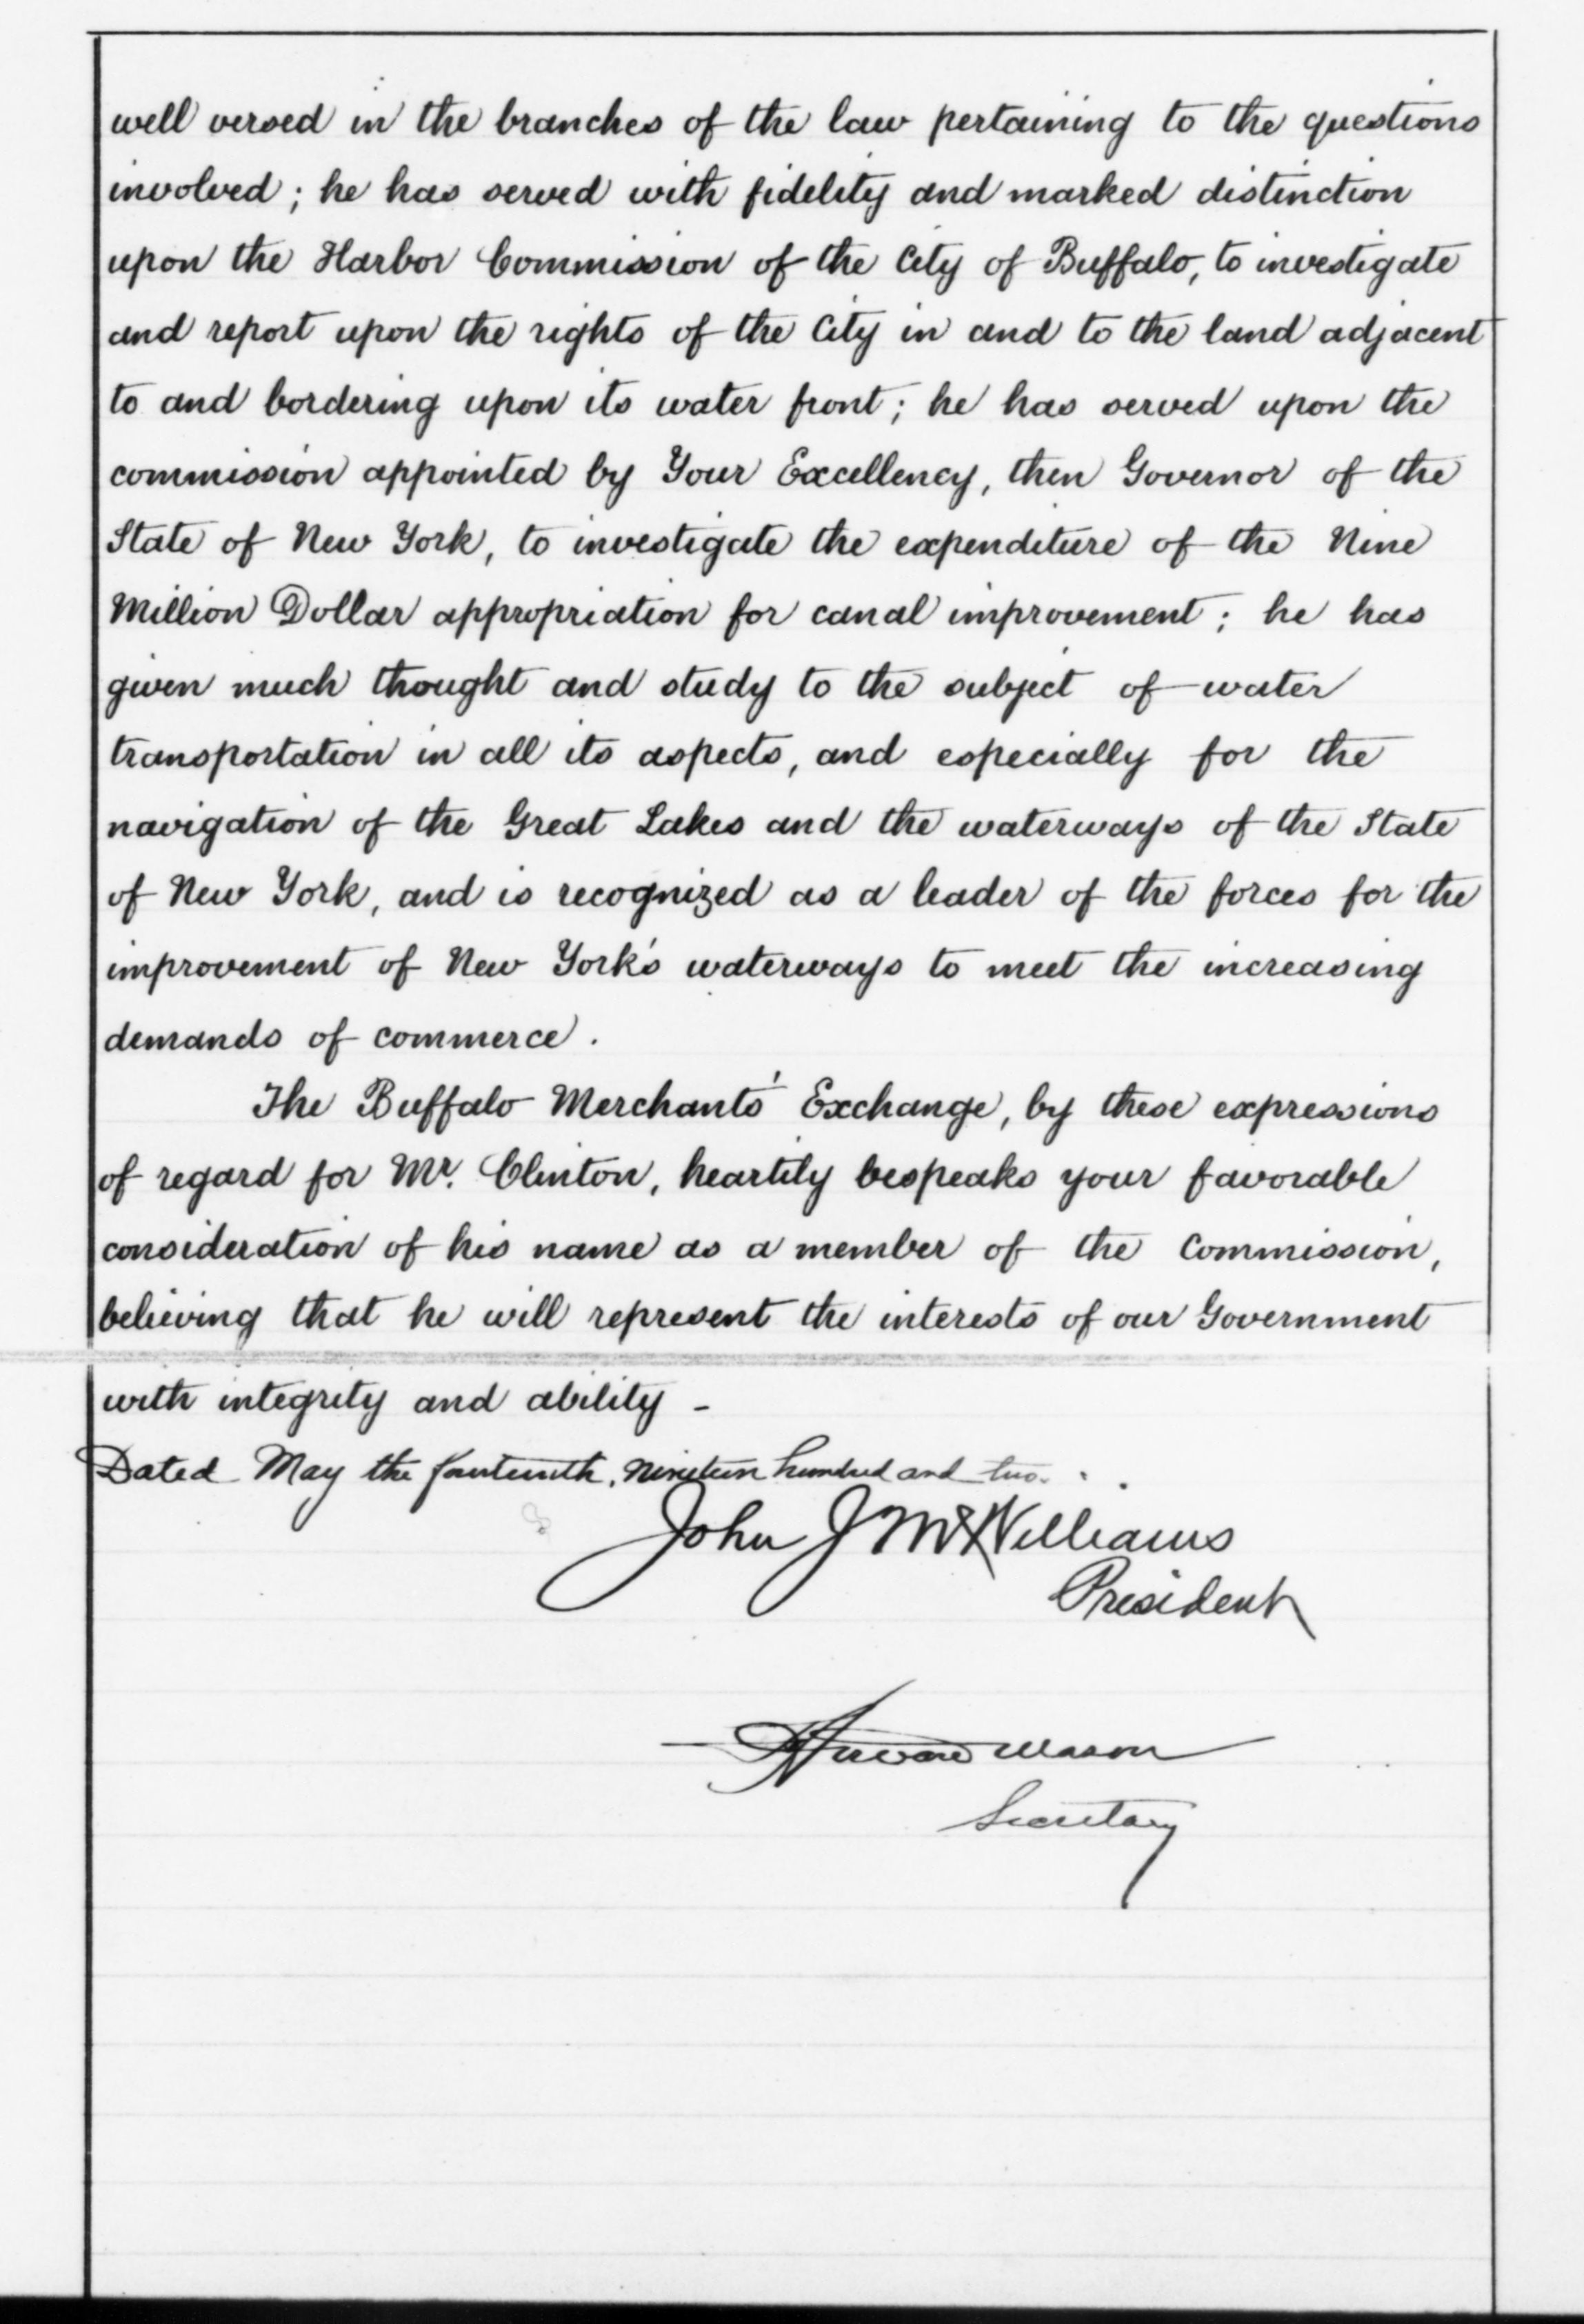 well versed in the branches of the law pertaining to the questions
involved; he has served with fidelity and marked distinction
upon the Harbor Commission of the City of Buffalo, to investigate
and report upon the rights of the City in and to the land adjacent
to and bordering upon its water front; he has served upon the
commission appointed by Your Excellency, then Governor of the
State of New York, to investigate the expenditure of the Nine
Million Dollar appropriation for canal improvement; he has
given much thought and study to the subject of water
transportation in all its aspects, and especially for the
navigation of the Great Lakes and the waterways of the State
of New York, and is recognized as a leader of the forces for the
improvement of New York's waterways to meet the increasing
demands of commerce.
The Buffalo Merchants' Exchange, by these expressions
of regard for Mr. Clinton, heartily bespeaks your favorable
consideration of his name as a member of the Commission,
believing that he will represent the interests of our Government
with integrity and ability -
Dated May the fourteenth, nineteen hundred and two.
John J McWilliams
President
Mason
Secretary